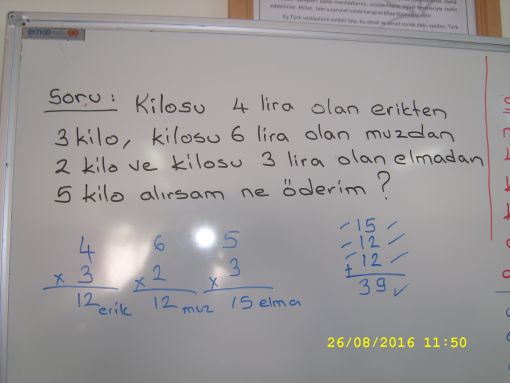 Soru: Kilosu 4 lira olan erikten
3 kilo, kilosu 6 lira olan muzdan
2 kilo ve kilosu 3 lira olan elmadan
5 kilo alırsam ne öderim?
4 6 5
x 3 x 2 x 3
12 erik 12 muz 15 elma
15
12
+ 12
39
26/08/2016 11:50